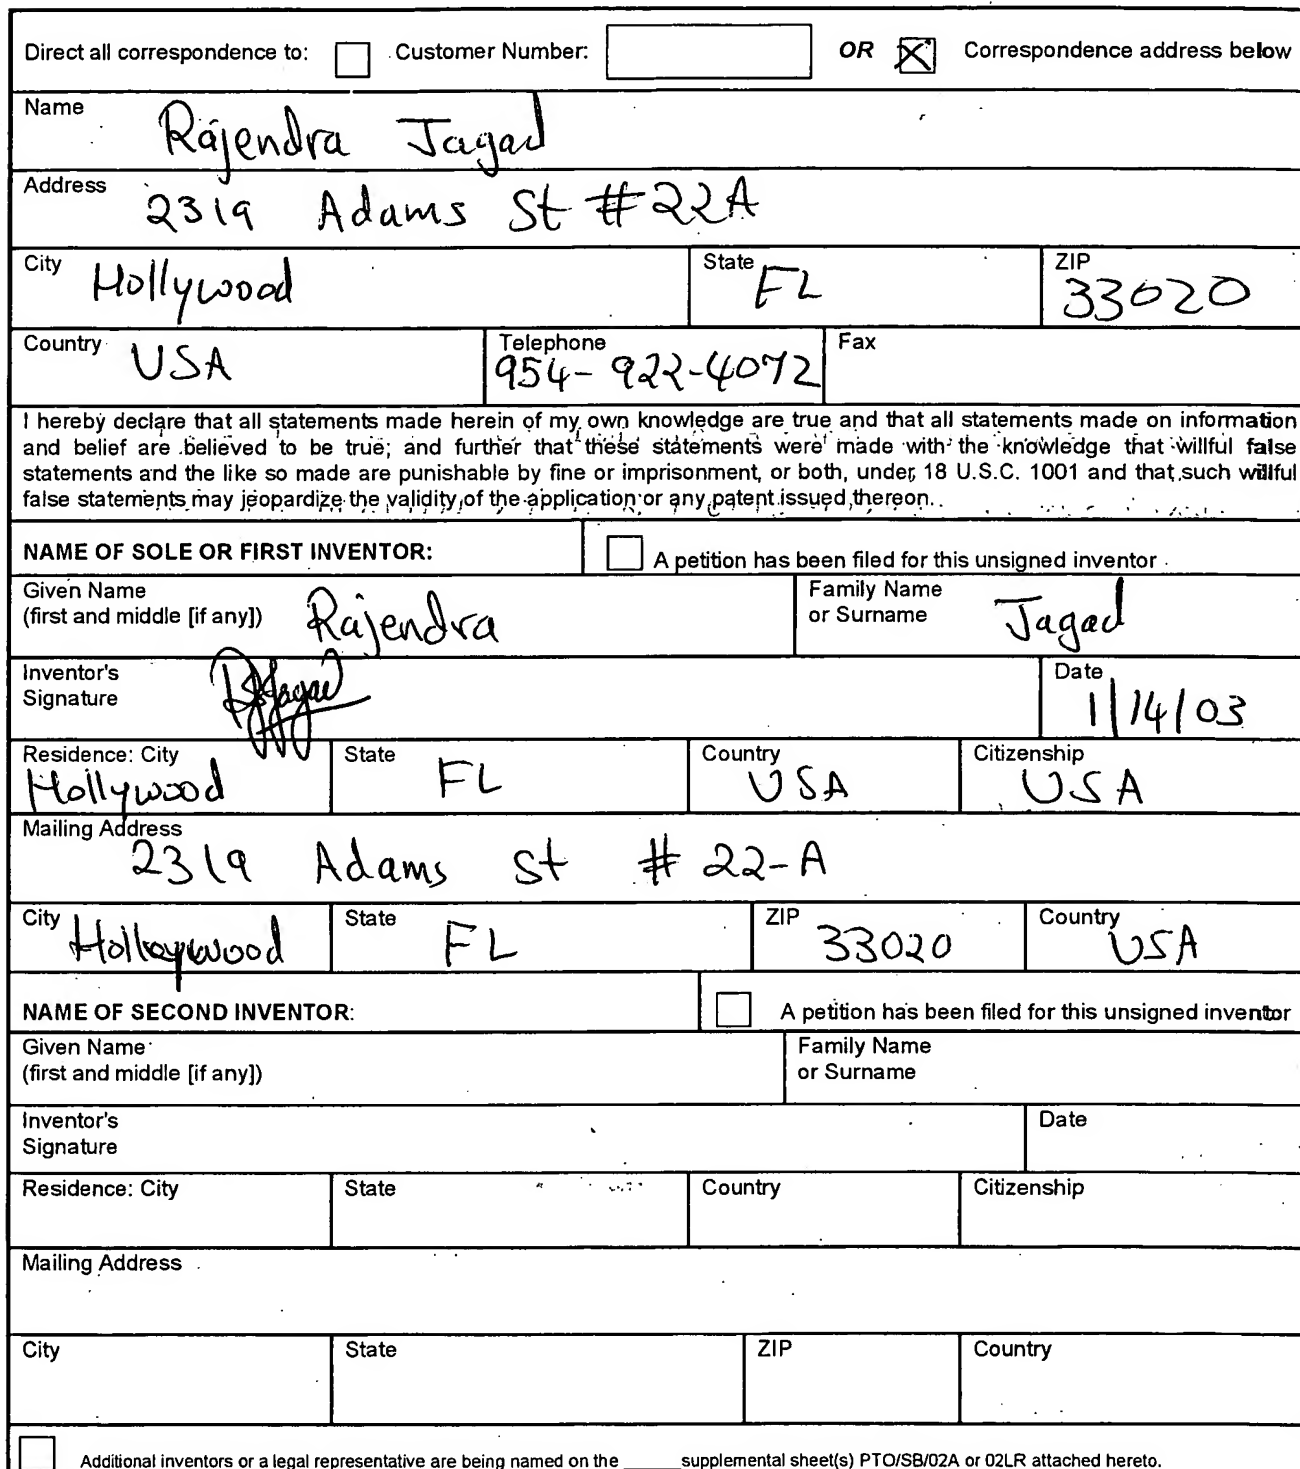 Direct all correspondence to: Customer Number: OR Correspondence address below
Name
Rajendra Jagad
Address
2319 Adams St #22A
City Hollywood State FL ZIP 33020
Country USA Telephone 954-922-4072 Fax
I hereby declare that all statements made herein of my own knowledge are true and that all statements made on information
and belief are believed to be true; and further that these statements were made with the knowledge that willful false
statements and the like so made are punishable by fine or imprisonment, or both, under 18 U.S.C. 1001 and that such willful
false statements may jeopardize the validity of the application or any patent issued thereon.
NAME OF SOLE OR FIRST INVENTOR: A petition has been filed for this unsigned inventor
Given Name Family Name
(first and middle [if any]) Rajendra or Surname Jagad
Inventor's Date
Signature RJJagad 1/14/03
Residence: City State FL Country USA Citizenship USA
Hollywood
Mailing Address
2319 Adams St # 22-A
City Hollywood State FL ZIP 33020 Country USA
NAME OF SECOND INVENTOR: A petition has been filed for this unsigned inventor
Given Name Family Name
(first and middle [if any]) or Surname
Inventor's Date
Signature
Residence: City State Country Citizenship
Mailing Address
City State ZIP Country
Additional inventors or a legal representative are being named on the ______supplemental sheet(s) PTO/SB/02A or 02LR attached hereto.